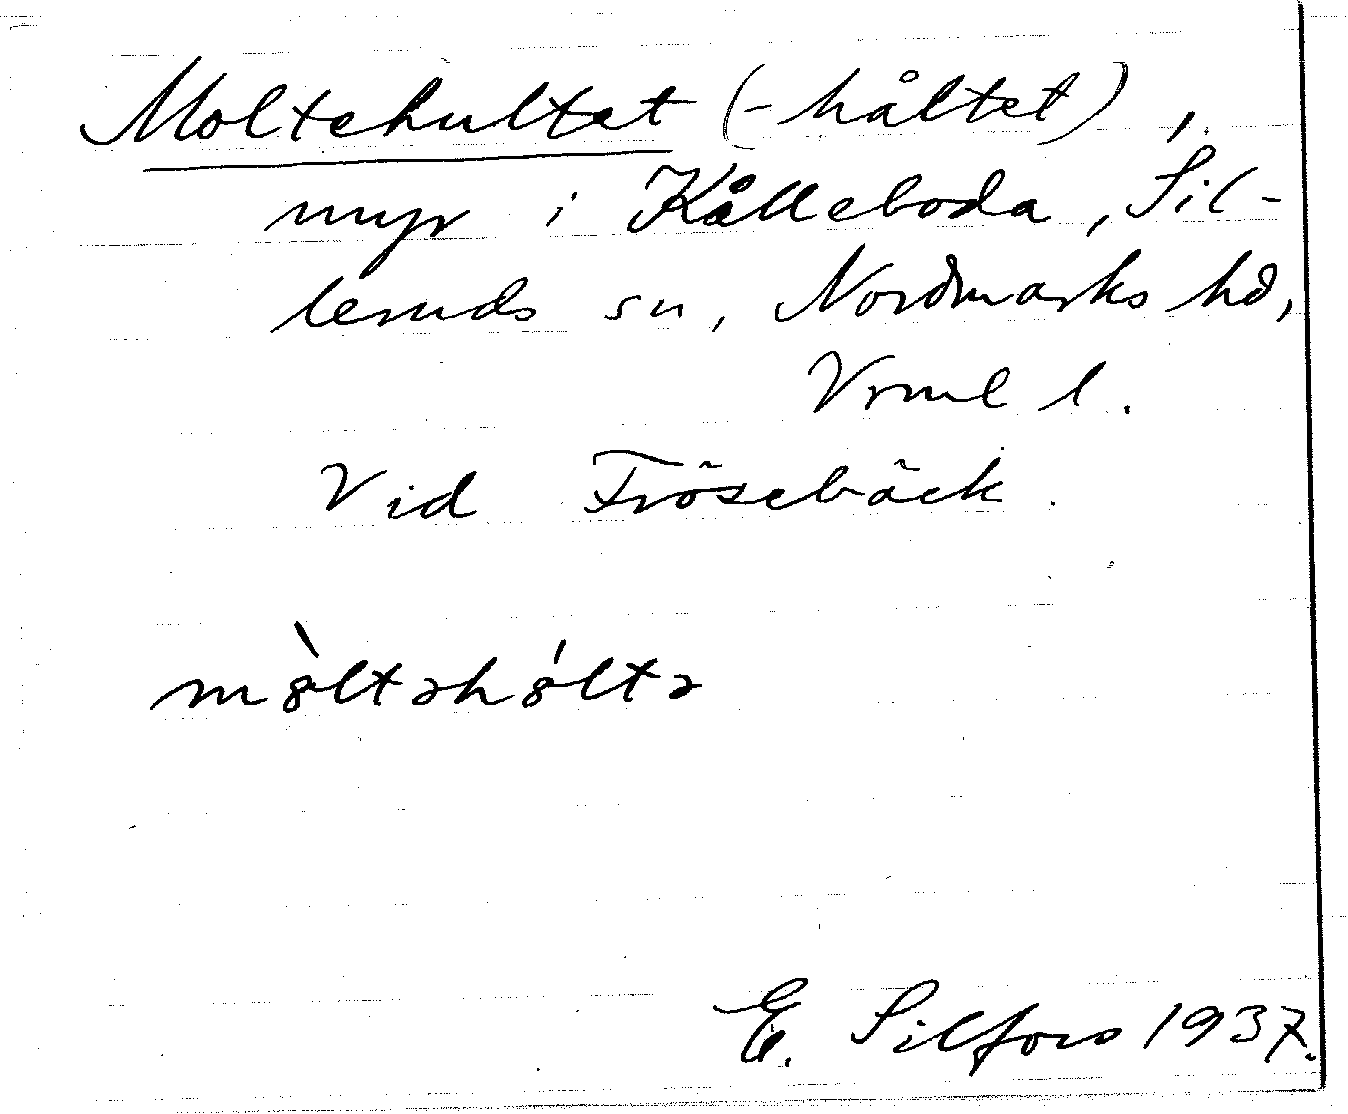 Moltehultet (-håltet),
myr i Kålleboda, Sil-
leruds sn, Nordmarks hd,
Vrml l.
Vid Frösebäck.
mòltəhóltə
E. Silfors 1937.